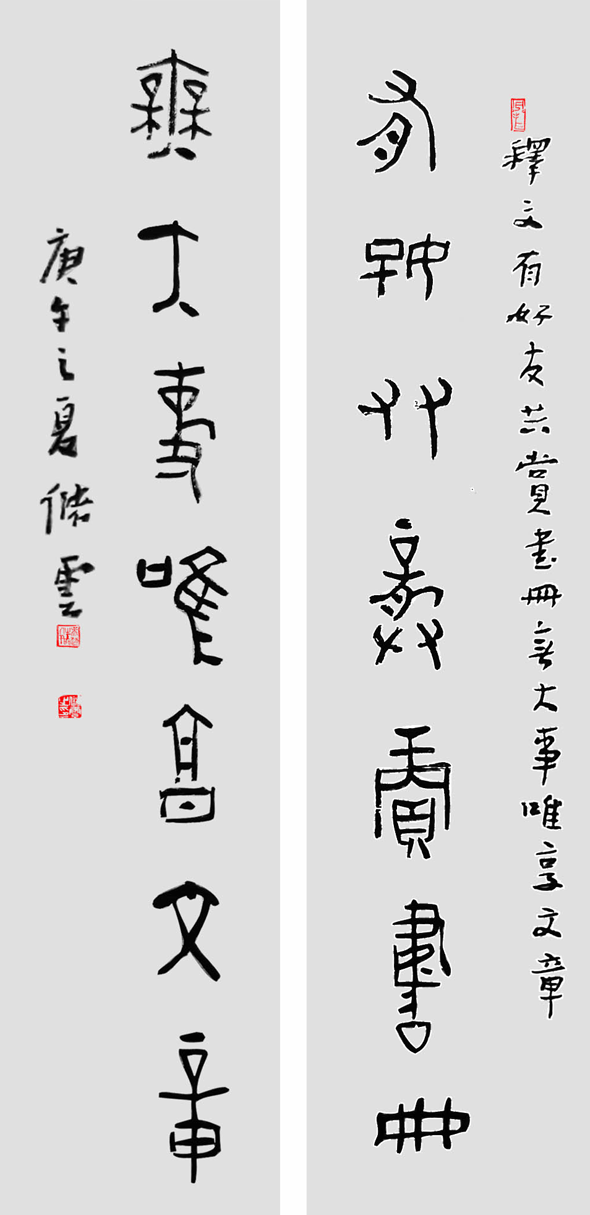 釋文有好友共賞書冊無大事唯享文章
有好友共賞書冊
無大事唯享文章
庚午之夏儲雲